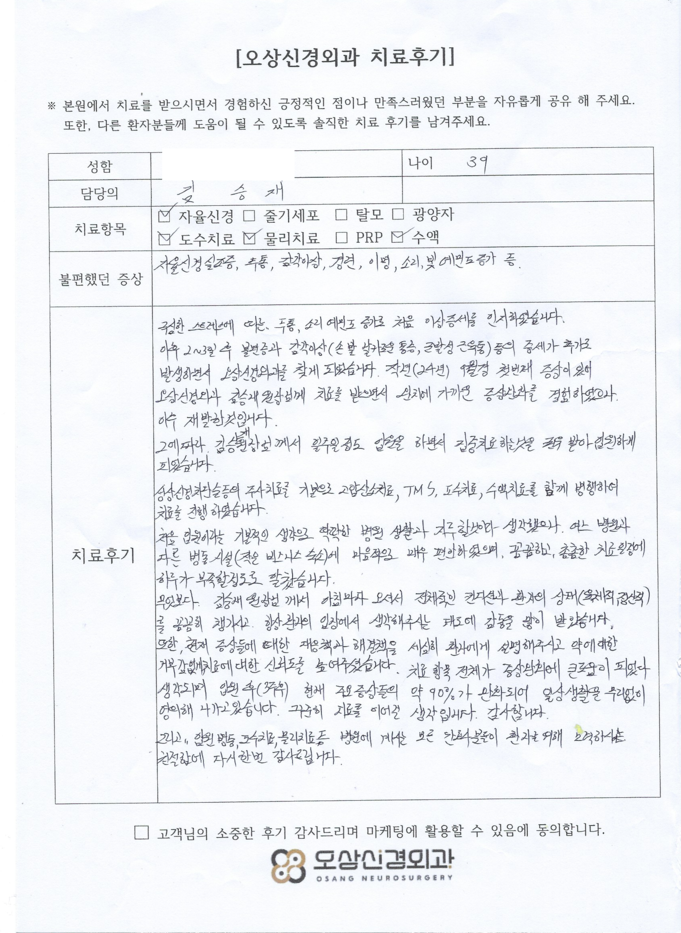 [오상신경외과 치료후기]
※ 본원에서 치료를 받으시면서 경험하신 긍정적인 점이나 만족스러웠던 부분을 자유롭게 공유 해 주세요.
또한, 다른 환자분들께 도움이 될 수 있도록 솔직한 치료 후기를 남겨주세요.
성함 나이 39
담당의 김승재
치료항목 ☑ 자율신경 □ 줄기세포 □ 탈모 □ 광양자
☑ 도수치료 ☑ 물리치료 □ PRP ☑ 수액
불편했던 증상 자율신경실조증, 두통, 감각이상, 경련, 이명, 소리,빛 예민도증가 등.
치료후기
극심한 스트레스에 따른 두통, 소리 예민도 증가로 처음 이상증세를 인지하였습니다.
이후 2~3일 후 불면증과 감각이상(손발 날카로운 통증, 돌발성 근육통)등의 증세가 추가로
발생하면서 오상신경외과를 찾게 되었습니다. 작년(24년) 9월경 첫번째 증상이 있어
오상신경외과 김승재 원장님께 치료를 받으면서 완치에 가까운 증상완화를 경험하였으나
이후 재발한것입니다.
그에따라 김승재원장님께서 일주일정도 입원을 하면서 집중치료 받아 입원하게
되었습니다.
성상신경차단술등의 주사치료를 기본으로 고압산소치료, TMS, 도수치료, 수액치료를 함께 병행하여
치료를 진행하였습니다.
처음 입원이라는 기본적인 생각으로 딱딱한 병원 생활과 지루할것이라 생각했으나, 여느 병원과
다른 병동시설(작은 비즈니스 숙소)에 매우 편안하였으며, 꼼꼼하고, 촘촘한 치료일정에
하루가 부족할정도로 알찼습니다.
무엇보다. 김승재 원장님께서 아침마다 오셔서 전체적인 컨디션과 환자의 상태(육체적,정신적)
를 꼼꼼히 챙기시고 항상환자의 입장에서 생각해주시는 태도에 감동을 많이 받았습니다.
또한, 현재 증상들에 대한 대응책과 해결책을 세심히 환자에게 설명해주시고 약에대한
거부감없게치료에 대한 신뢰도를 높여주셨습니다. 치료 항목 전체가 증상완화에 큰도움이 되었다
생각되며 입원 후 현재 주요증상들의 약 90%가 완화되어 일상생활을 무리없이
영위해 나가고있습니다. 꾸준히 치료를 이어갈 생각입니다. 감사합니다.
그리고, 입원병동,도수치료,물리치료등 병원에 계시는 모든 분들이 환자를 위해 노력하시는
친절함에 다시한번 감사드립니다.
□ 고객님의 소중한 후기 감사드리며 마케팅에 활용할 수 있음에 동의합니다.
오상신경외과
OSANG NEUROSURGERY